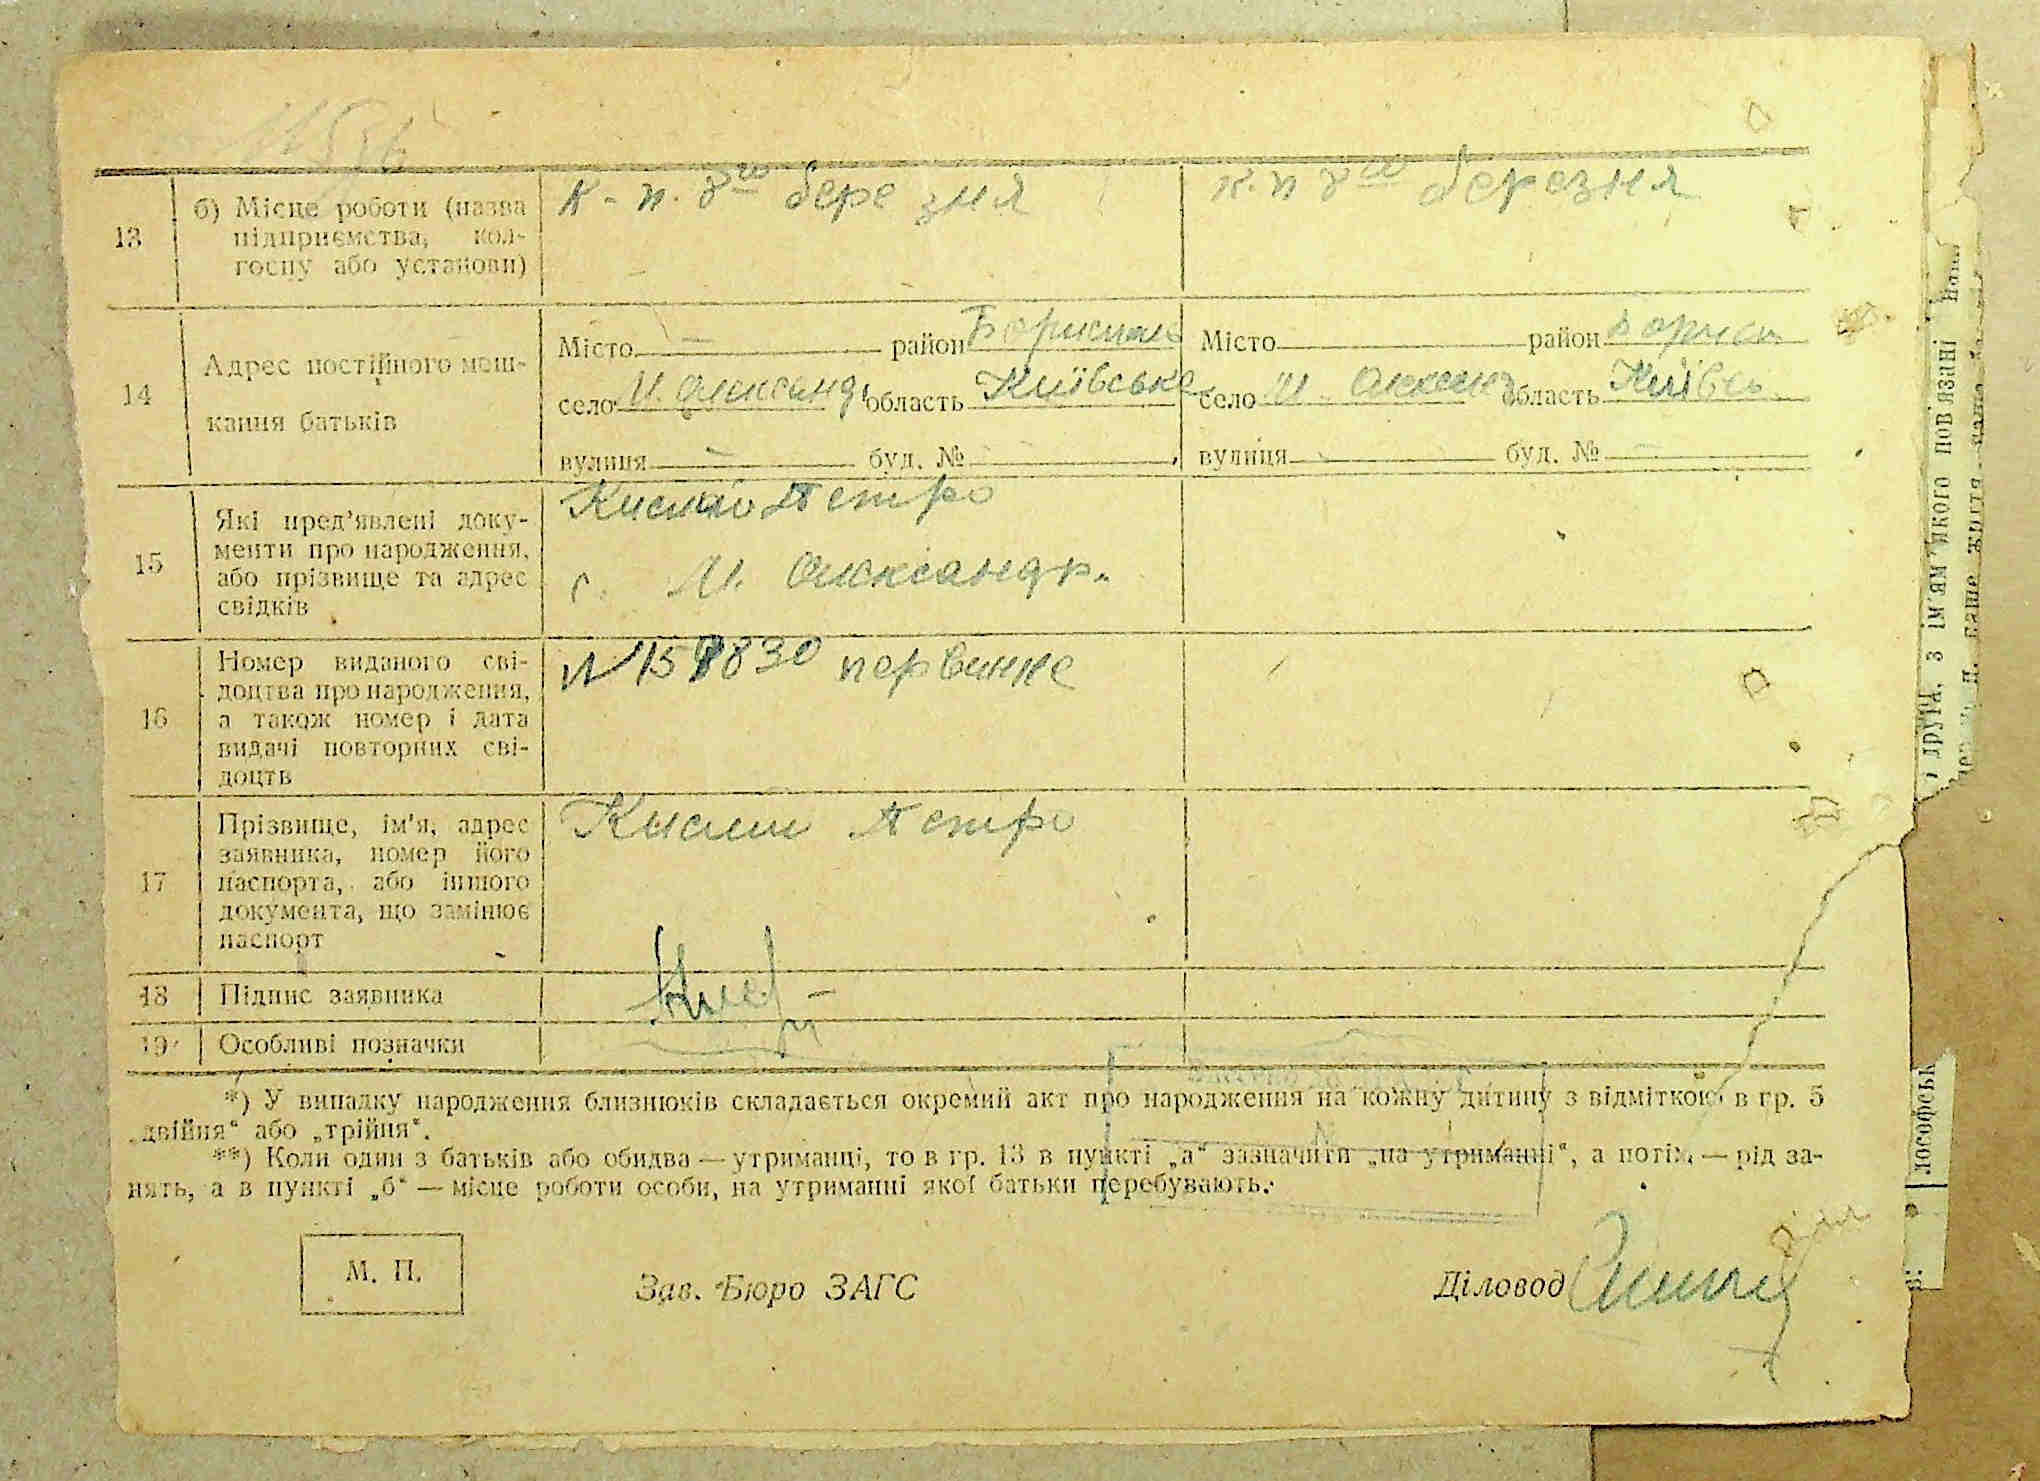 13 б) Місце роботи (назва підприємства, колгоспу або установи)
к-п. 8го березня
к.п 8го березня
14 Адрес постійного мешкання батьків
Місто — район Бориспіль
село М. Олександ. область Київська
вулиця — буд. №
Місто район Борисп
село М. Олександ область Київсь
вулиця буд. № —
15 Які пред'явлені документи про народження, або прізвище та адрес свідків
Кислий Петро
с. М. Олександр.
16 Номер виданого свідоцтва про народження, а також номер і дата видачі повторних свідоцтв
N 157830 первинне
17 Прізвище, ім'я, адрес заявника, номер його паспорта, або іншого документа, що замінює паспорт
Кислий Петро
18 Підпис заявника
19 Особливі позначки
*) У випадку народження близнюків складається окремий акт про народження на кожну дитину з відміткою в гр. 5
„двійня“ або „трійня“.
**) Коли один з батьків або обидва — утриманці, то в гр. 13 в пункті „а“ зазначити „на утриманні“, а потім — рід за-
нять, а в пункті „б“ — місце роботи особи, на утриманні якої батьки перебувають.
М. П.
Зав. Бюро ЗАГС
Діловод
друга, з ім'ям якого пов'язані
наше життя
лософськ